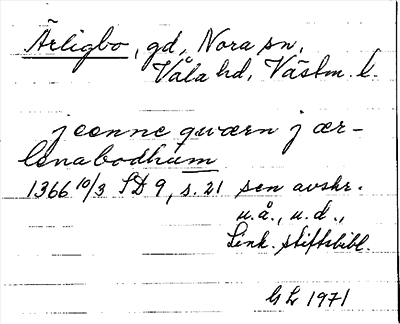 Ärligbo, gd, Nora sn,
Våla hd, Västm. l.
j eenne quærn j ær-
lenabodhum
1366 10/3 SD 9, s. 21 sen avskr.
u.å., u.d.,
Link. stiftsbibl.
GL 1971